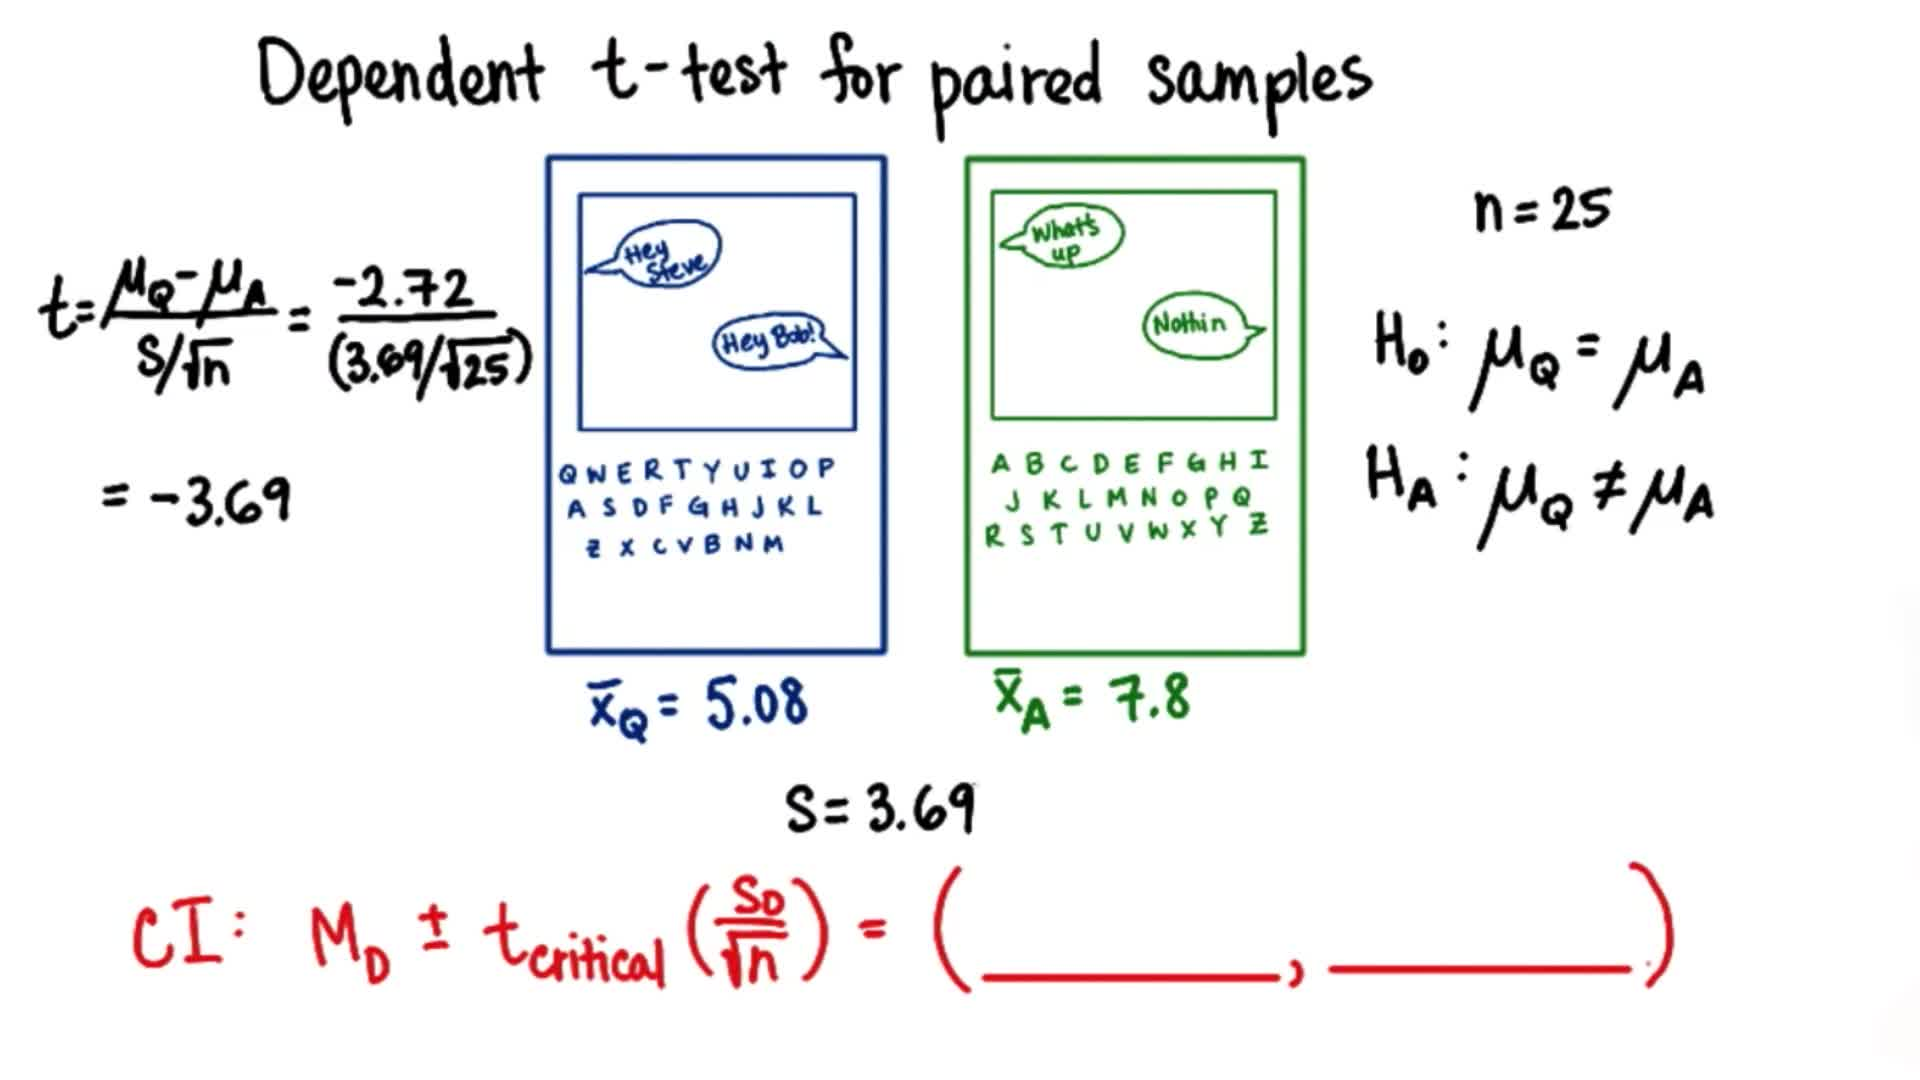 Dependent t-test for paired samples
t = μQ - μA / S/√n = -2.72 / (3.69/√25)
= -3.69
Hey Steve
Hey Bob!
Q W E R T Y U I O P
A S D F G H J K L
Z X C V B N M
x̄Q = 5.08
What's up
Nothin
A B C D E F G H I
J K L M N O P Q
R S T U V W X Y Z
x̄A = 7.8
n = 25
H₀: μQ = μA
HA: μQ ≠ μA
S = 3.69
CI: MD ± tcritical (SD/√n) = (____, ____)